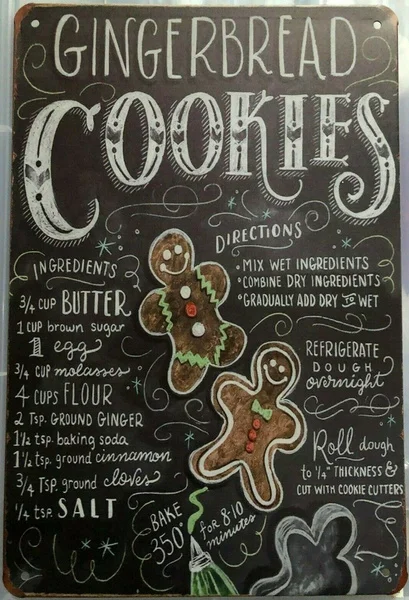 GINGERBREAD
COOKIES
INGREDIENTS
3/4 CUP BUTTER
1 CUP brown sugar
1 egg
3/4 CUP molasses
4 CUPS FLOUR
2 Tsp. GROUND GINGER
1 1/2 tsp. baking soda
1 1/2 tsp. ground cinnamon
3/4 Tsp. ground cloves
1/4 tsp. SALT
DIRECTIONS
• MIX WET INGREDIENTS
• COMBINE DRY INGREDIENTS
• GRADUALLY ADD DRY TO WET
REFRIGERATE
DOUGH
overnight
Roll dough
to 1/4" THICKNESS &
CUT WITH COOKIE CUTTERS
BAKE
350°
for 8-10
minutes